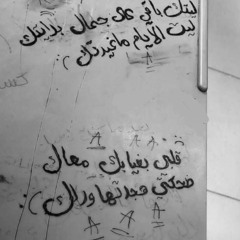 ليتك باقي على جمال بدايتك
ليت الايام ماغيرتك :(
A
A A
قلبي بغيابك معاك
ضحكتي خذتها وراك :(
A A A
A